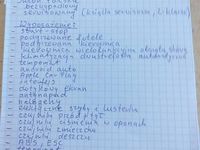 salon Polska
- bezwypadkowy
- serwisowany (książka serwisowa, 2 klucze)
Wyposażenie:
start-stop
podgrzewane fotele
podgrzewana kierownica
kierownica wielofunkcyjna
klimatyzacja dwustrefowa automatyczna
tempomat
android auto
Apple CarPlay
dotykowy ekran
elektryczne szyby i lusterka
czujniki przód tył
czujniki ciśnienia w oponach
czujniki zmierzchu
czujniki deszczu
ABS, ESC